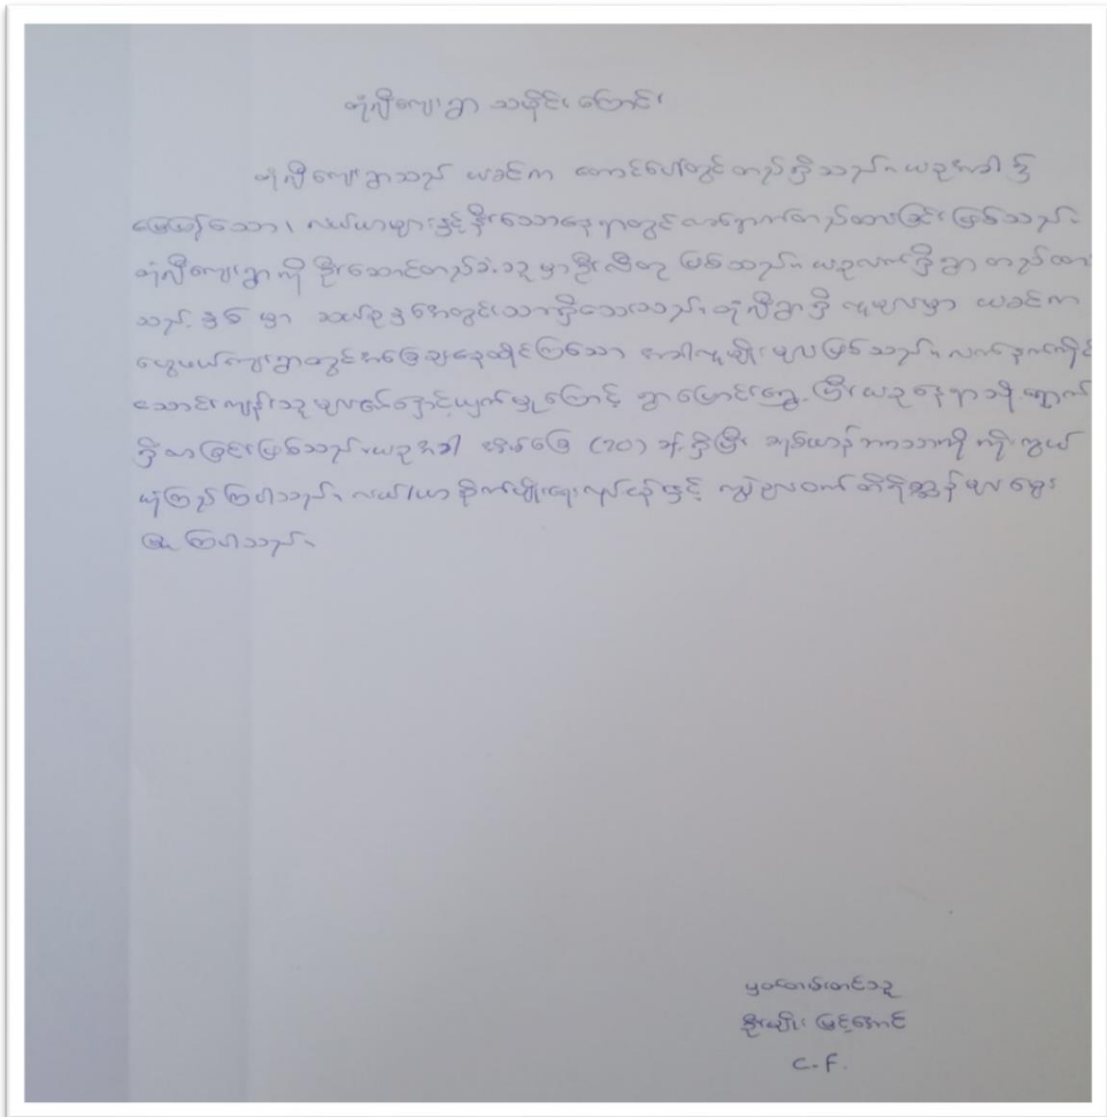 တုံလီကျေးရွာ သမိုင်း ကြောင်း
တုံလီကျေးရွာသည် ယခင်က တောင်ပေါ်တွင်တည်ရှိသည်။ ယခုအခါ ၌
မြေပြန့်သော၊ လယ်ယာများနှင့်နီးသောနေရာတွင် လာရောက်တည်ထားခြင်းဖြစ်သည်။
တုံလီကျေးရွာကို ဦးဆောင်တည်ခဲ့သူမှာဦးလီတု ဖြစ်သည်။ ယခုလက်ရှိရွာ တည်ထား
သည့်နှစ် မှာ ဆယ်စုနှစ်အတွင်းသာရှိသေးသည်။ တုံလီရွာရှိ လူများမှာ ယခင်က
အခြေချနေထိုင်ကြသော အာခါလူမျိုးများဖြစ်သည်။ လက်နက်ကိုင်
သောင်းကျန်းသူများ၏နှောင့်ယှက်မှုကြောင့် ရွာပြောင်းရွှေ့ ပြီးယခုနေရာသို့ရောက်
ရှိလာခြင်းဖြစ်သည်။ ယခုအခါ အိမ်ခြေ (၁၀) ခန့်ရှိပြီး ခရစ်ယာန်ဘာသာကို ကိုးကွယ်
ယုံကြည်ကြပါသည်။ လယ်/ယာစိုက်ပျိုးရေးလုပ်ငန်းနှင့် ကျွဲ၊နွား၊ဝက် တိရိစ္ဆာန်များမွေး
မြူကြပါသည်။
မှတ်တမ်းတင်သူ
စိုးမျိုး မြင့်အောင်
C.F.